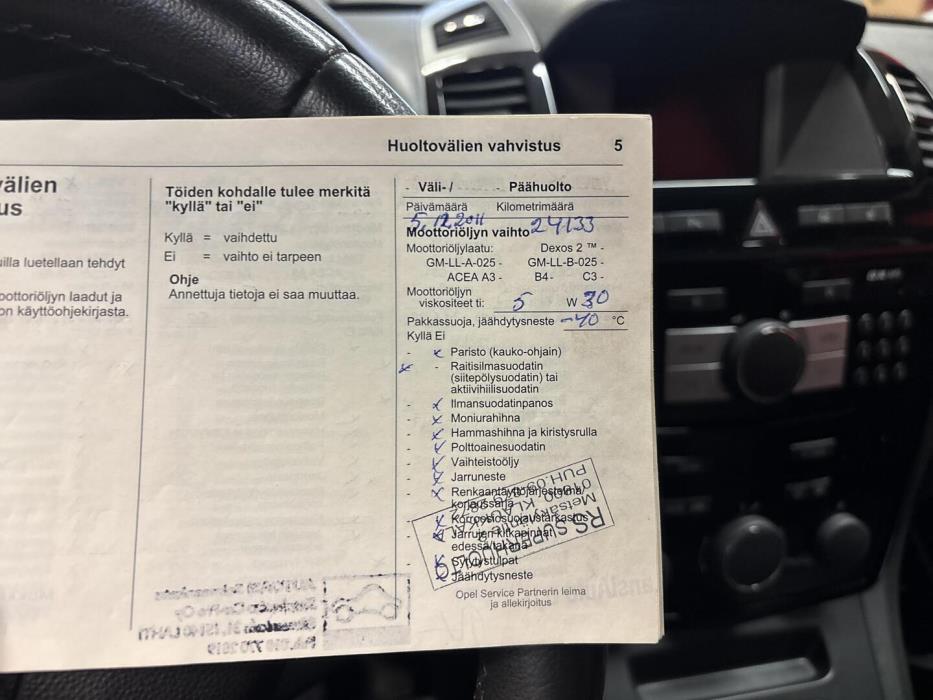 Huoltovälien vahvistus 5
välien
us
uilla luetellaan tehdyt
oottoriöljyn laadut ja
on käyttöohjekirjasta.
Töiden kohdalle tulee merkitä
"kyllä" tai "ei"
Kyllä = vaihdettu
Ei = vaihto ei tarpeen
Ohje
Annettuja tietoja ei saa muuttaa.
- Väli- / - Päähuolto
Päivämäärä Kilometrimäärä
5.12.2011 24133
Moottoriöljyn vaihto
Moottoriöljylaatu: Dexos 2 ™ -
GM-LL-A-025 - GM-LL-B-025 -
ACEA A3 - B4 - C3 -
Moottoriöljyn
viskositeet ti: 5 W 30
Pakkassuoja, jäähdytysneste -40 °C
Kyllä Ei
- x Paristo (kauko-ohjain)
x - Raitisilmasuodatin
(siitepölysuodatin) tai
aktiivihiilisuodatin
- x Ilmansuodatinpanos
- x Moniurahihna
- x Hammashihna ja kiristysrulla
- x Polttoainesuodatin
- x Vaihteistoöljy
- x Jarruneste
- x Renkaantäyttöjärjestelmä/
korjaussarja
- x Korroosiosuojaustarkastus
- x Jarrujen kitkapinnat
edessä/takana
- x Sytytystulpat
- x Jäähdytysneste
RS SUPERHUOLTO
Opel Service Partnerin leima
ja allekirjoitus